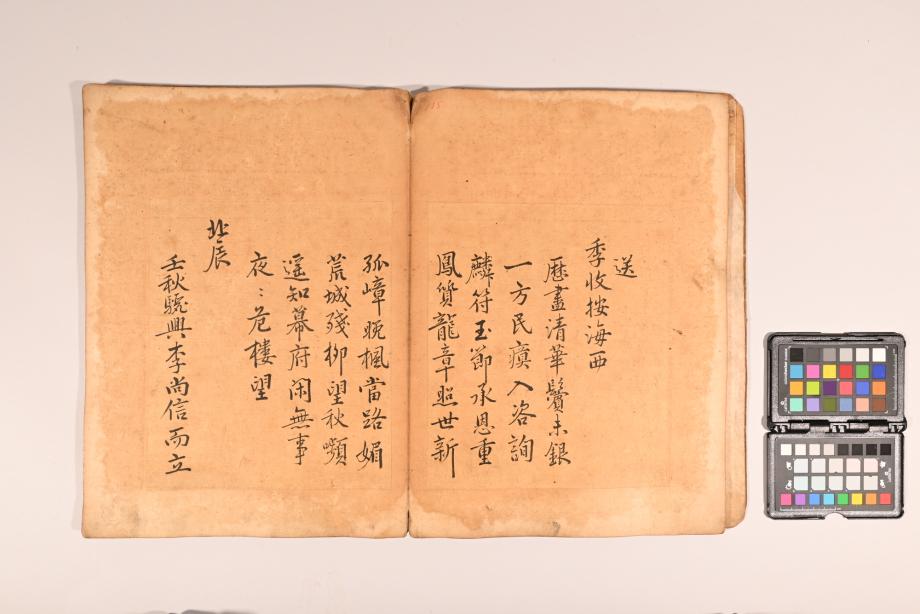 送
季收按海西
歷盡清華鬢未銀
一方民瘼入咨詢
麟符玉節承恩重
鳳質龍章照世新
孤嶂晚楓當路媚
荒城殘柳望秋顰
遥知幕府閑無事
夜〻危樓望
北辰
壬秋驪興李尚信而立